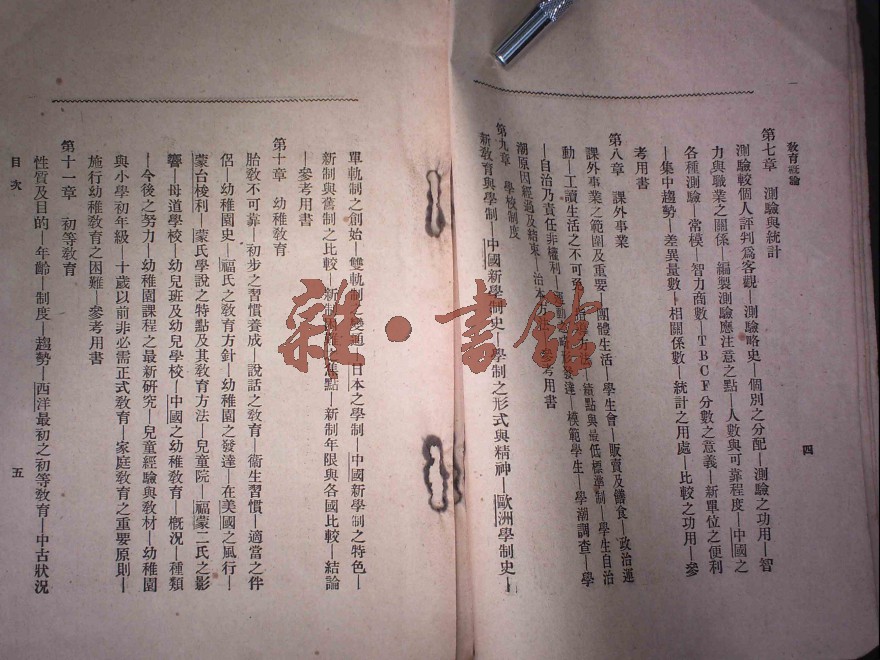 教育概論
四
第七章　測驗與統計
測驗較個人評判爲客觀—測驗略史—個別之分配—測驗之功用—智
力與職業之關係—編製測驗應注意之點—人數與可靠程度—中國之
各種測驗—常模—智力商數—TBCF分數之意義—新單位之便利
—集中趨勢—差異量數—相關係數—統計之用處—比較之功用—參
考用書
第八章　課外事業
課外事業之範圍及重要—團體生活—學生會—販賣及膳食—政治運
動—工讀生活之不可—績點與最低標準制—學生自治
—自治乃責任非權利—發達—模範學生—學潮調查—學
潮原因經過及結束—治本方—參考用書
第九章　學校制度
新教育與學制—中國新學制史—學制之形式與精神—歐洲學制史—
單軌制之創始—雙軌制之變—日本之學制—中國新學制之特色—
新制與舊制之比較—新制—點—新制年限與各國比較—結論
—參考用書
第十章　幼稚教育
胎教不可靠—初步之習慣養成—說話之教育—衞生習慣—適當之伴
侶—幼稚園史—福氏之教育方針—幼稚園之發達—在美國之風行—
蒙台梭利—蒙氏學說之特點及其教育方法—兒童院—福蒙二氏之影
響—母道學校—幼兒班及幼兒學校—中國之幼稚教育—概況—種類
—今後之努力—幼稚園課程之最新研究—兒童經驗與教材—幼稚園
與小學初年級—十歲以前非必需正式教育—家庭教育之重要原則—
施行幼稚教育之困難—參考用書
第十一章　初等教育
性質及目的—年齡—制度—趨勢—西洋最初之初等教育—中古狀況
目次
五
雜·書館